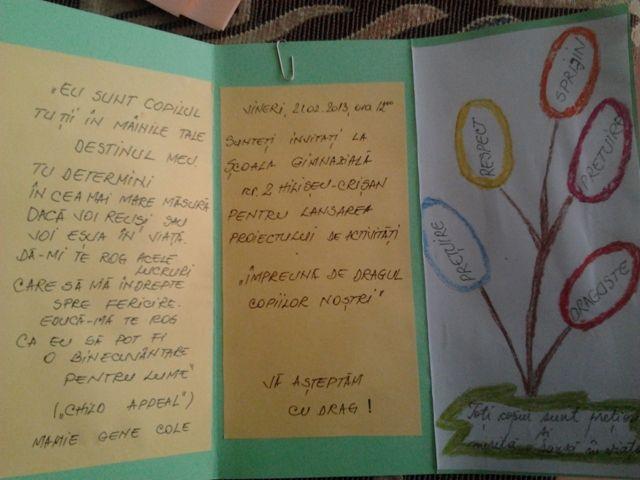 „EU SUNT COPILUL
TU ȚII ÎN MÂINILE TALE
DESTINUL MEU.
TU DETERMINI
ÎN CEA MAI MARE MĂSURĂ
DACĂ VOI REUȘI SAU
VOI EȘUA ÎN VIAȚĂ.
DĂ-MI TE ROG ACELE
LUCRURI
CARE SĂ MĂ ÎNDREPTE
SPRE FERICIRE.
EDUCĂ-MĂ TE ROG
CA EU SĂ POT FI
O BINECUVÂNTARE
PENTRU LUME"
(„CHILD APPEAL")
MAMIE GENE COLE
VINERI, 21.02.2013, ora 12⁰⁰
SUNTEȚI INVITAȚI LA
ȘCOALA GIMNAZIALĂ
nr. 2 HILISEU-CRIȘAN
PENTRU LANSAREA
PROIECTULUI DE ACTIVITĂȚI
„ÎMPREUNĂ DE DRAGUL
COPIILOR NOȘTRI"
VĂ AȘTEPTĂM
CU DRAG!
SPRIJIN
RESPECT
PREȚUIRE
PREȚUIRE
DRAGOSTE
Toți copiii sunt prețioși
și
merită o șansă în viață